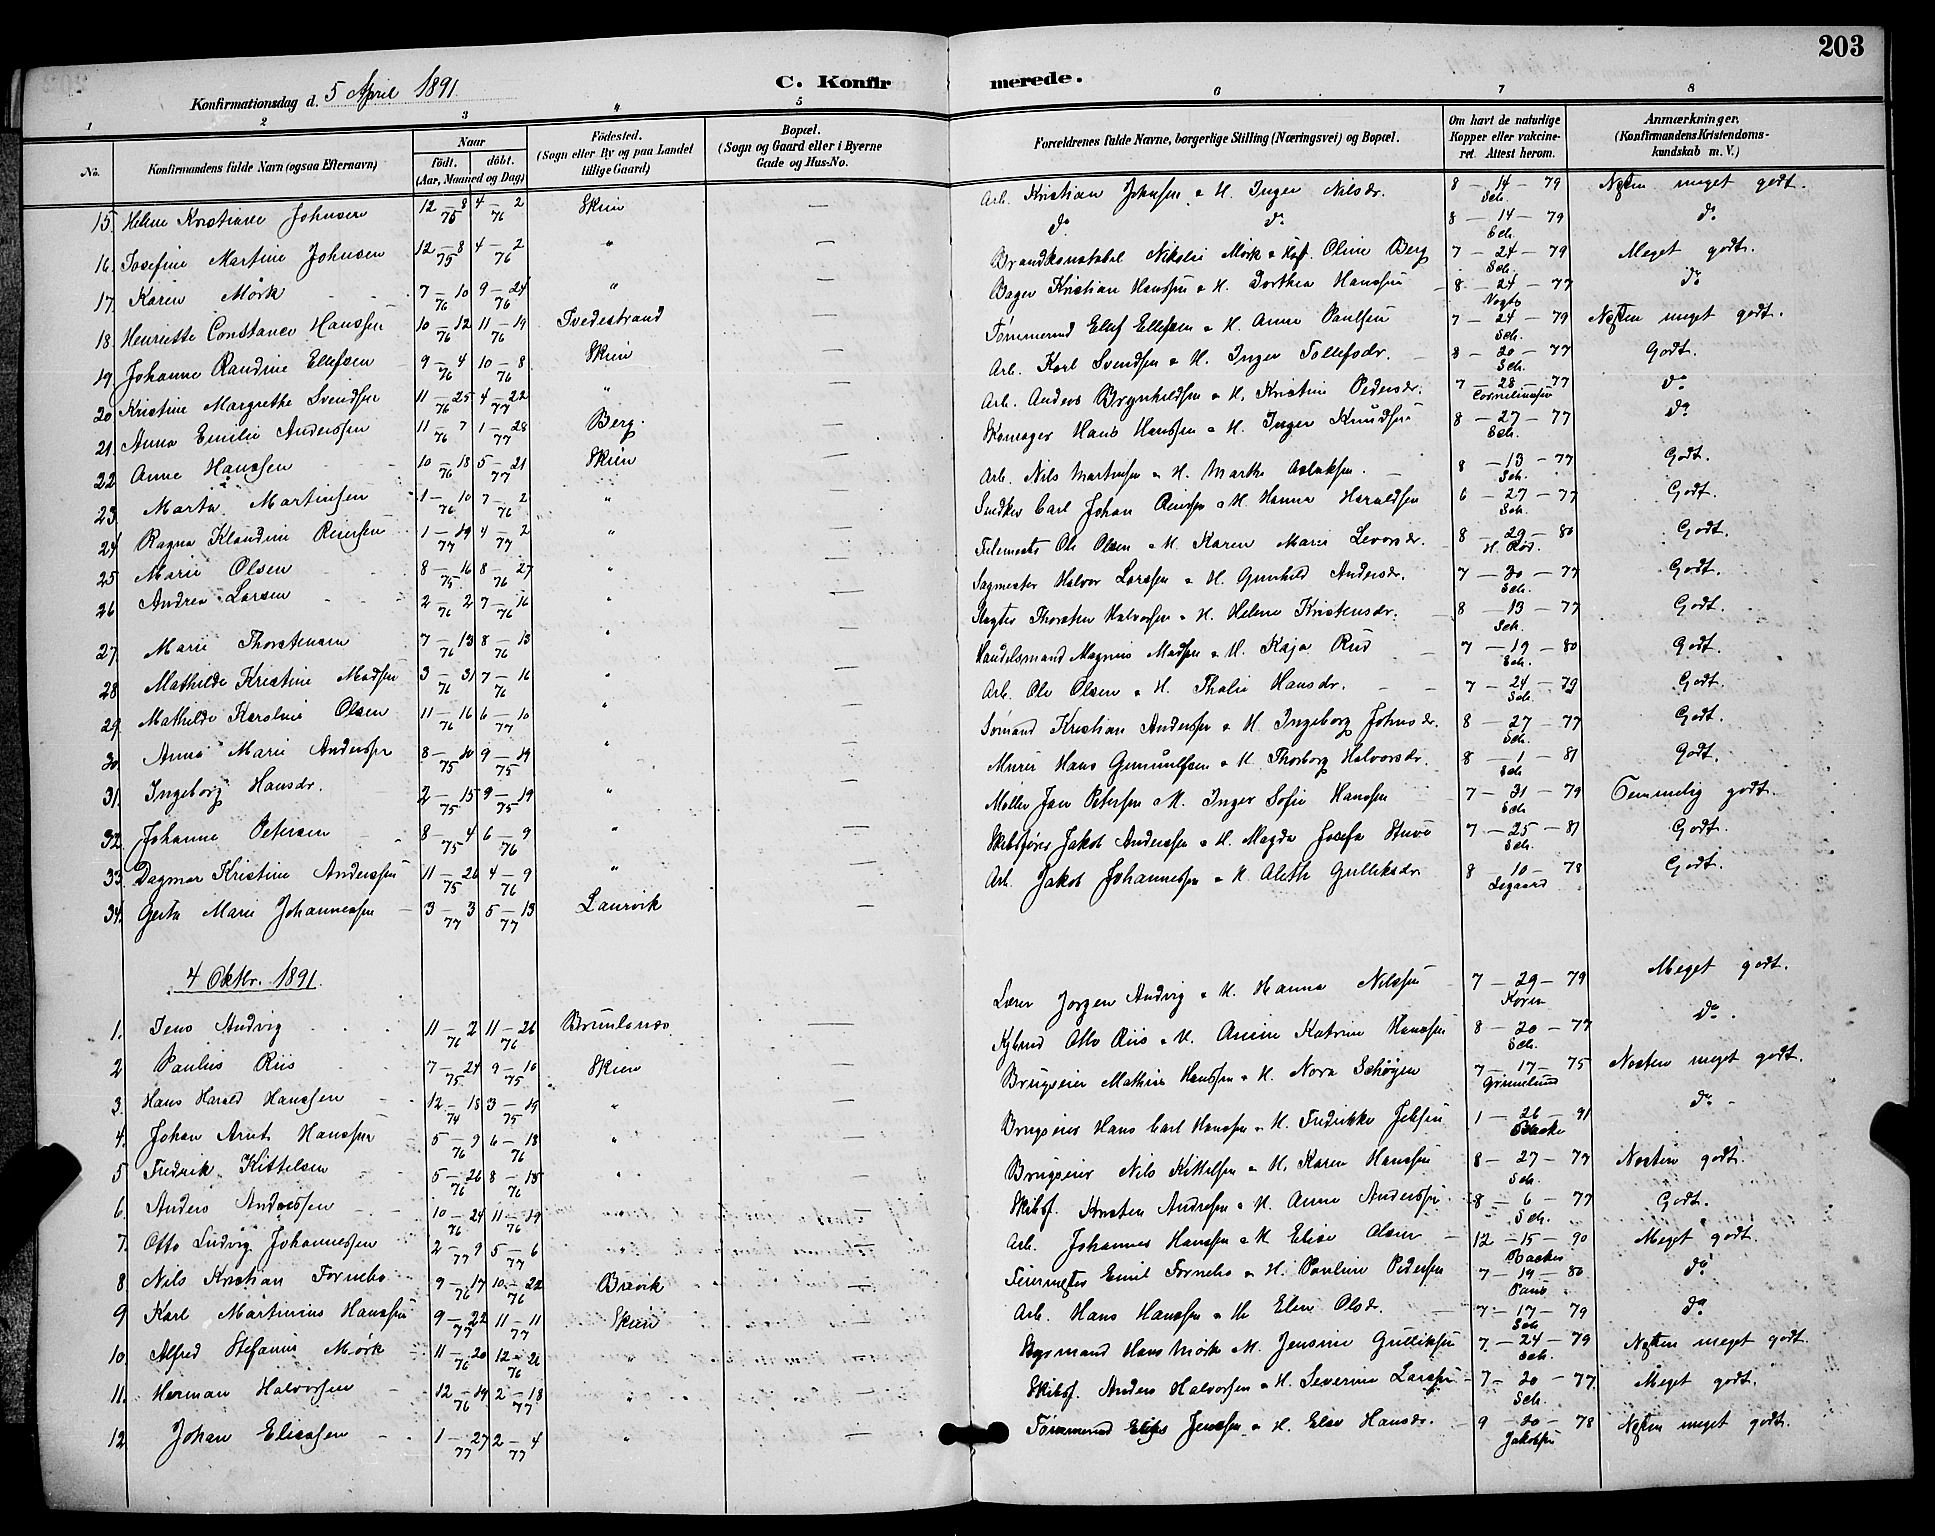 203
Konfirmationsdag d. 5 April 1891
C. Konfirmerede.
1 2 3 4 5 6 7 8
No. Konfirmandens fulde Navn (ogsaa Efternavn) Naar født. døbt. (Aar, Maaned og Dag) Fødested. (Sogn eller By og paa Landet tillige Gaard) Bopæl. (Sogn og Gaard eller i Byerne Gade og Hus-No. Forældrenes fulde Navne, borgerlige Stilling (Næringsvei) og Bopæl. Om havt de naturlige Kopper eller vakcineret. Attest herom. Anmærkninger. (Konfirmandens Kristendomskundskab m. V.)
15. Helene Kristiane Johnsen 12-8 75 4-2 76 Skien — Arb. Kristian Johnsen & H. Inger Nilsdr. 8-14-79 Sch. Næsten meget godt.
16. Josefine Martine Johnsen 12-8 75 4-2 76 " — do do 8-14-79 Sch. do
17. Karen Mørk 7-10 76 9-24 76 " — Brandkonstabel Nikolai Mørk & Hust. Oline Berg 7-24-79 Sch. Meget godt.
18. Henriette Constance Hanssen 10-12 76 11-19 76 Tvedestrand — Bager Kristian Hanssen & H. Dorthea Hanssen 8-24-77 Vogt do
19. Johanne Randine Ellefsen 9-4 76 10-8 76 Skien — Tømmermd Ellef Ellefsen & H. Anne Paulsen 7-24-79 Sch. Næsten meget godt.
20. Kristine Margrethe Svendsen 11-25 76 4-22 77 " — Arb. Karl Svendsen & H. Inger Tollefsdr. 8-20-77 Sch. Godt.
21. Anna Emilie Anderssen 11-7 76 1-28 77 Berg. — Arb. Anders Brynhildsen & H. Kristine Pedersdr. 7-28-77 Corneliussen do
22. Anne Hanssen 10-18 76 5-21 77 Skien — Skomager Hans Hanssen & H. Inger Knudsen 8-27-77 Sch. do
23. Marta Martinsen 1-10 76 7-2 76 " — Arb. Nils Martinsen & H. Marthe Aslaksen. 8-13-77 Sch. Godt.
24. Ragna Klaudine Reiersen 1-19 77 4-2 77 " — Snedker Carl Johan Reiersen & H. Hanna Haraldsen 6-27-77 Sch. Godt.
25. Marie Olsen 8-16 75 8-27 76 " — Ole Olsen & H. Karen Marie Levorsdr. 8-29-80 H. Rød. Godt.
26. Andrea Larsen 2-2 76 7-16 76 " — Sagmester Halvor Larssen & H. Gunhild Andersdr. 7-30-77 Sch. Godt.
27. Marie Thorstensen 7-13 76 8-13 76 " — Slagter Thorsten Halvorsen & H. Helene Kristensdr. 8-13-77 Sch. Godt.
28. Mathilde Kristine Madsen 3-31 76 7-16 76 " — Handelsmand Magnus Madsen & H. Kaja Rud 7-19-80 Sch. Godt.
29. Mathilde Karoline Olsen 11-16 76 6-10 77 " — Arb. Ole Olsen & H. Thalie Hansdr. 7-24-79 Sch. Godt.
30. Anna Marie Anderssen 8-10 75 9-19 75 " — Sømand Kristian Anderssen & H. Ingeborg Johnsdr. 8-27-77 Sch. Godt.
31. Ingeborg Hansdr. 2-15 75 9-19 75 " — Murer Hans Gunnulfsen & H. Thorborg Halvorsdr. 8-1-81 Sch Godt.
32. Johanne Petersen 8-4 75 6-9 76 " — Møller Jan Petersen & H. Inger Sofie Hanssen 7-31-79 Sch Temmelig godt.
33. Dagmar Kristine Anderssen 11-26 75 4-9 76 " — Skibsfører Jakob Anderssen & H. Magda Josefa Stuve 7-25-81 Sch. Godt.
34. Gerta Marie Johannessen 3-3 77 5-13 77 Laurvik — Arb. Jakob Johannessen & H. Aleth Gulliksdr. 8-10-78 Legaard Godt.
4 Oktbr. 1891.
1. Jens Andvig 11-2 76 11-26 76 Brunlanæs. — Lærer Jørgen Andvig & H. Hanna Nilssen 7-29-79 Koren Meget godt.
2 Paulus Riis 7-24 75 9-10 75 Skien — Otto Riis & H. Anine Katrine Hanssen 8-20-77 Sch. do
3. Hans Harald Hanssen 12-18 74 3-19 75 " — Brugseier Mathias Hanssen & H. Nora Schøyen 7-17-75 Grimelund Næsten meget godt.
4. Johan Arnt Hanssen 5-9 76 6-18 76 " — Brugseier Hans Carl Hanssen & H. Fredrikke Jebsen 1-26-91 Backe do
5 Fredrik Kittelsen 5-26 76 8-15 76 " — Brugseier Nils Kittelsen & H. Karen Hanssen 8-27-77 Sch. Næsten godt.
6. Anders Anderssen 10-24 76 11-19 76 " — Skibsf. Kristen Andersen & H. Anne Anderssen 8-6-77 Sch. Godt.
7. Otto Ludvig Johannessen 2-9 77 5-6 77 " — Arb. Johannes Hanssen & H. Elise Olsen 12-15-90 Backe Meget godt.
8 Nils Kristian Fornebo 9-17 76 10-22 76 Brevik — Feiermester Emil Fornebo & H. Pauline Pedersen 7-19-80 Paus do
9 Karl Martinius Hanssen 9-22 77 11-11 77 Skien — Arb. Hans Hanssen & H. Elen Olsdr. 7-17-79 Sch do
10. Alfred Stefanus Mørk 11-20 76 12-26 76 " — Hans Mørk & H. Jensine Gulliksen 7-24-79 Sch. Næsten meget godt.
11. Herman Halvorsen 12-19 76 2-18 77 " — Skibsf. Anders Halvorsen & H. Severine Larssen 7-20-77 Sch. Meget godt.
12 Johan Eliassen 1-27 77 2-4 77 " — Tømmermd Elias Jenssen & H. Else Hansdr. 9-20-78 Jakobsen Næsten meget godt.